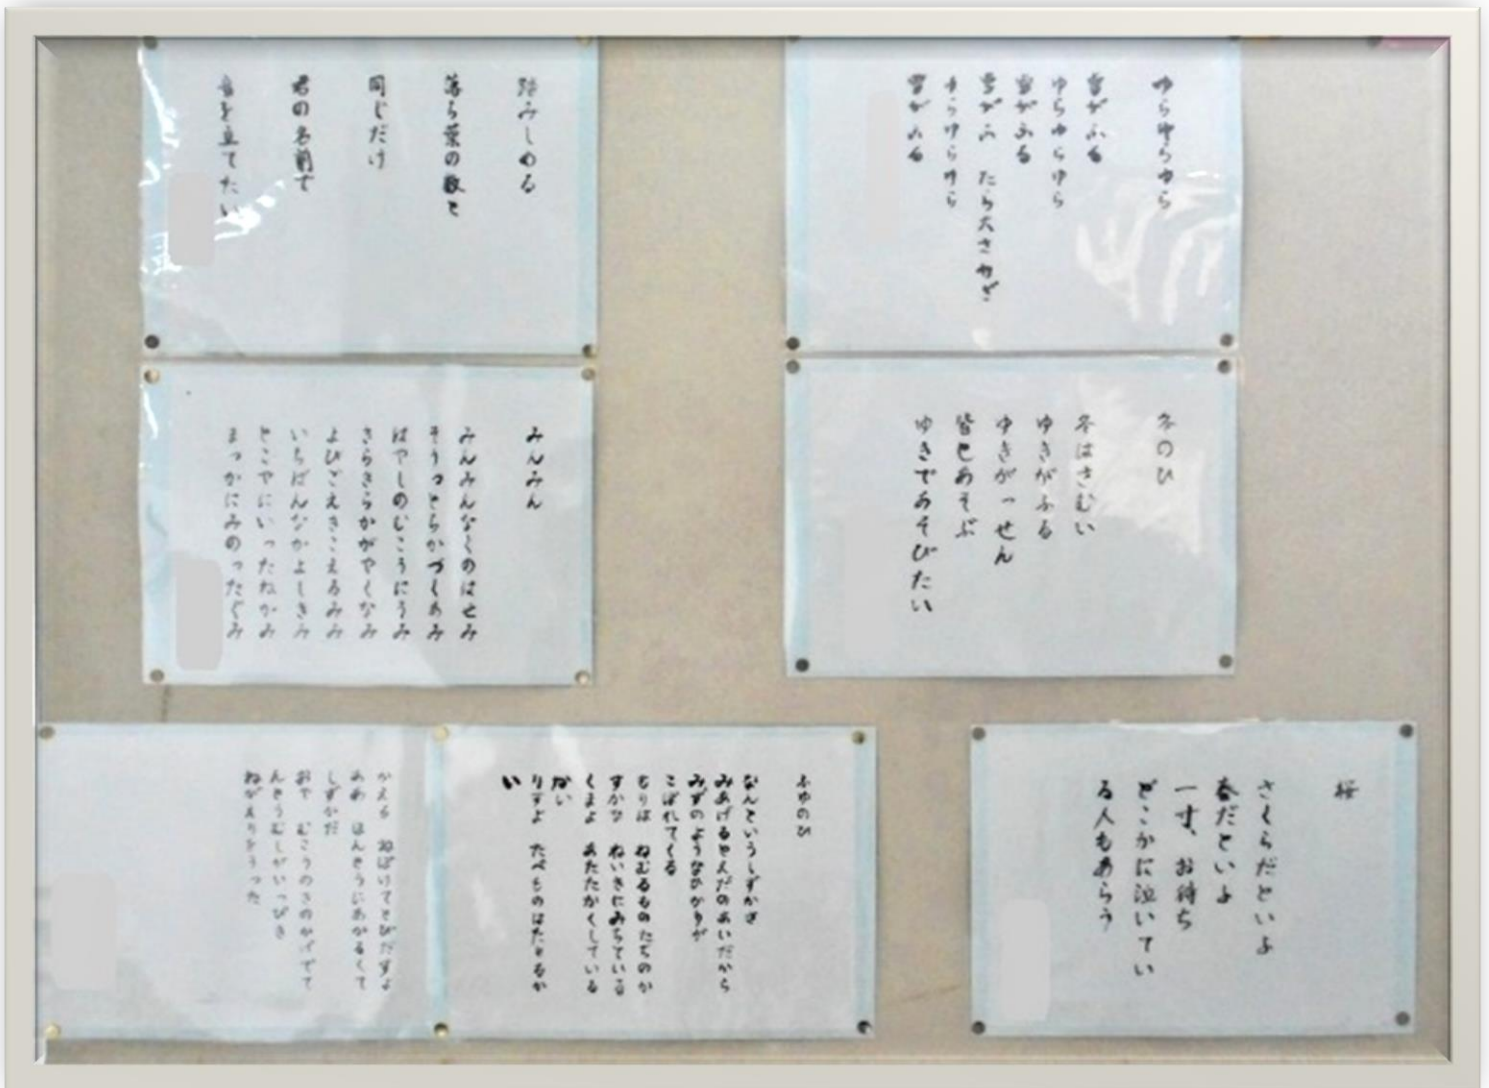 ゆらゆらゆら
雪がふる
ゆらゆらゆら
雪がふる
雪がふ たら大さわぎ
ゆらゆらゆら
雪がふる
踏みしめる
落ち葉の数と
同じだけ
君の名前で
音を立てたい
冬のひ
冬はさむい
ゆきがふる
ゆきがっせん
皆とあそぶ
ゆきであそびたい
みんみん
みんみんなくのはせみ
そうっとちかづくあみ
はやしのむこうにうみ
きらきらかがやくなみ
よびごえきこえるみみ
いちばんなかよしきみ
とこやにいったねかみ
まっかにみのったぐみ
桜
さくらだといふ
春だといふ
一寸、お待ち
どこかに泣いてい
る人もあらう
ふゆのひ
なんというしずかさ
みあげるとえだのあいだから
みずのようなひかりが
こぼれてくる
もりは ねむるものたちのか
すかな ねいきにみちている
くまよ あたたかくしている
かい
りすよ たべものはたりるか
い
かえる ねぼけてとびだすよ
ああ ほんとうにあかるくて
しずかだ
おや むこうのきのかげでて
んとうむしがいっぴき
ねがえりをうった